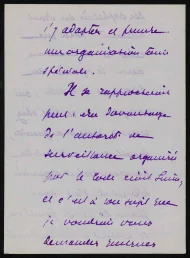 s'y adapter et prendre
une organisation toute
spéciale.
Il se rapprocherait
peut-être davantage
de l'autorité de
surveillance organisée
par le code civil Suisse,
et c'est à son sujet que
je voudrais vous
demander quelques